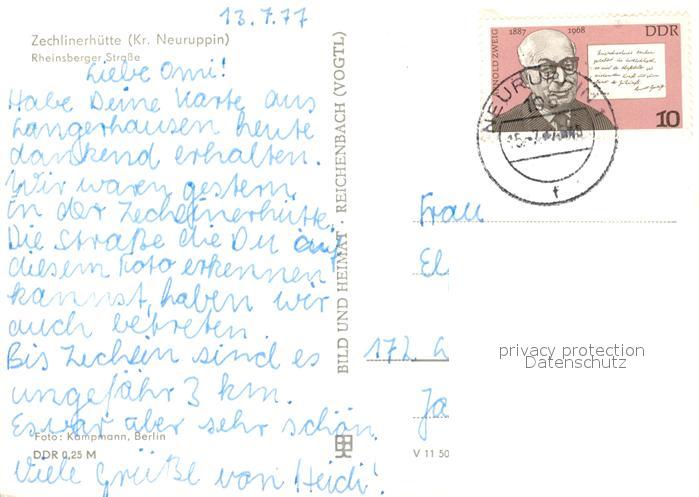 13.7.77
Zechlinerhütte (Kr. Neuruppin)
Rheinsberger Straße
Liebe Omi!
Habe Deine Karte aus
Sangerhausen heute
dankend erhalten.
Wir waren gestern
in der Zechlinerhütte.
Die Straße die Du auf
diesem Foto erkennen
kannst, haben wir
auch betreten.
Bis Zechlin sind es
ungefähr 3 km.
Es war aber sehr schön.
Foto: Kampmann, Berlin
DDR 0,25 M
Viele Grüße von Heidi!
BILD UND HEIMAT · REICHENBACH (VOGTL)
V 11 50
ARNOLD ZWEIG 1887 1968 DDR
10
NEURUPPIN
Frau
El
172
Ja
privacy protection
Datenschutz